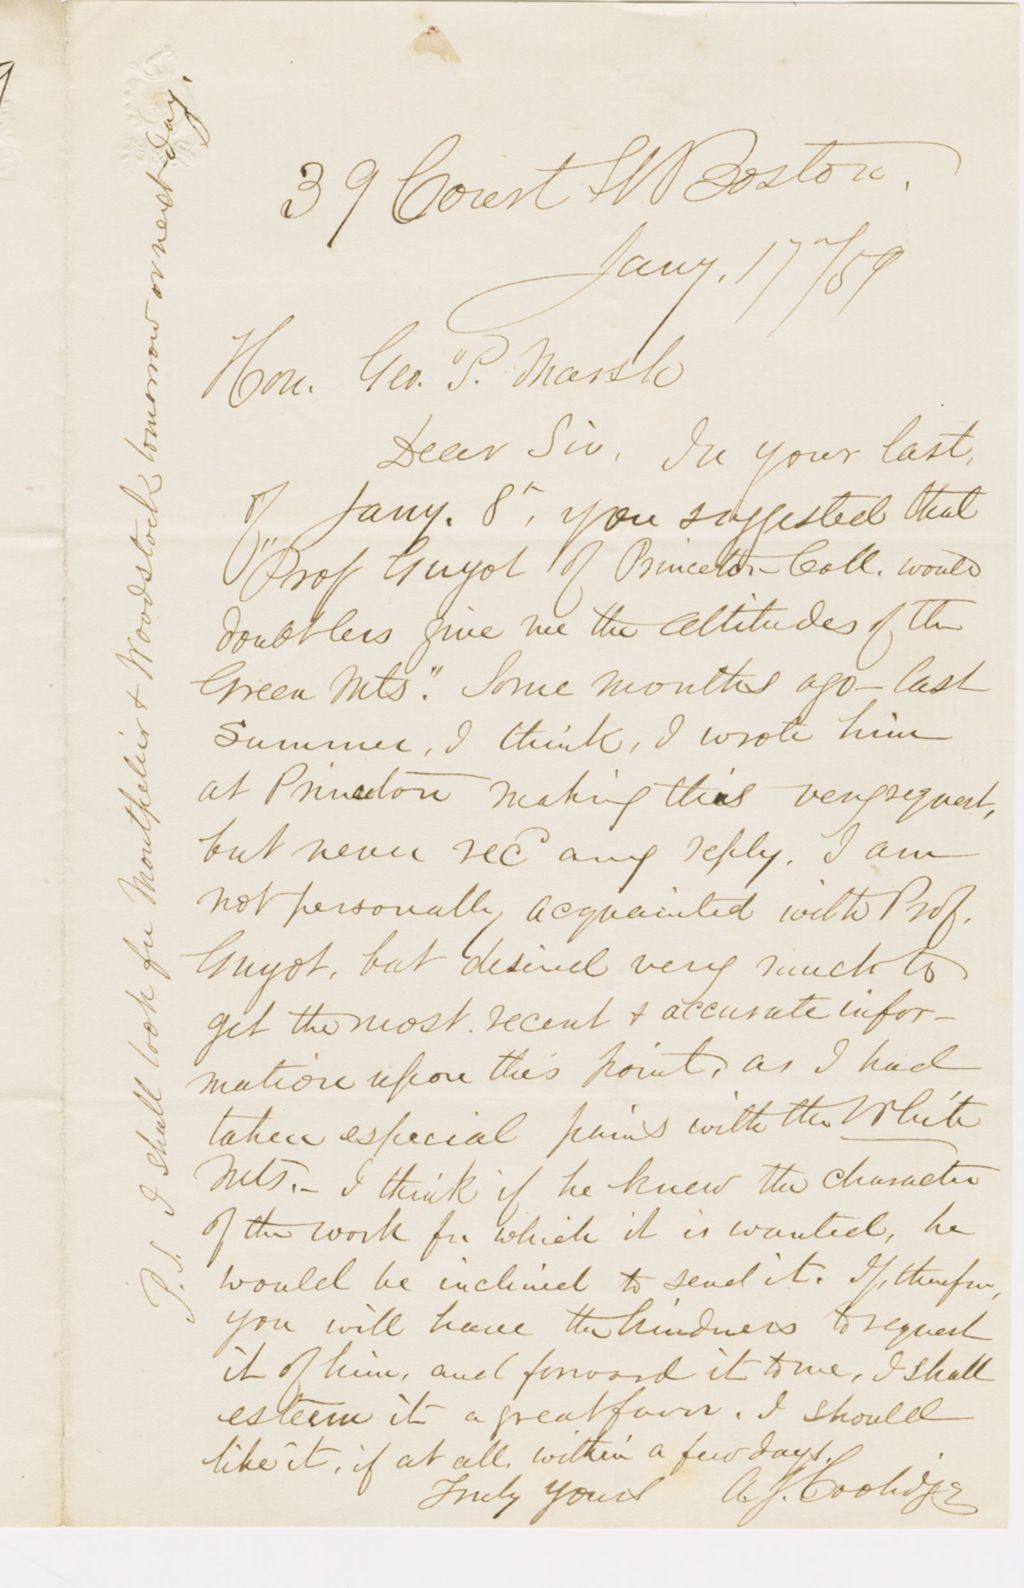 39 Court St Boston.
Jany. 17th/59
Hon. Geo. P. Marsh
Dear Sir, In your last,
of Jany. 8th, you suggested that
"Prof Guyot of Princeton Coll. would
doubtless give me the altitudes of the
Green Mts." Some months ago - last
summer, I think, I wrote him
at Princeton making this very request,
but never recd any reply. I am
not personally acquainted with Prof.
Guyot, but desired very much to
get the most recent & accurate infor-
mation upon this point, as I had
taken especial pains with the White
Mts. - I think if he knew the character
of the work for which it is wanted, he
would be inclined to send it. If, therefore,
you will have the kindness to request
it of him, and forward it to me, I shall
esteem it a great favor. I should
like it, if at all, within a few days.
Truly yours A. J. Coolidge
P.S. I shall look for Montpelier & Woodstock tomorrow or next day.